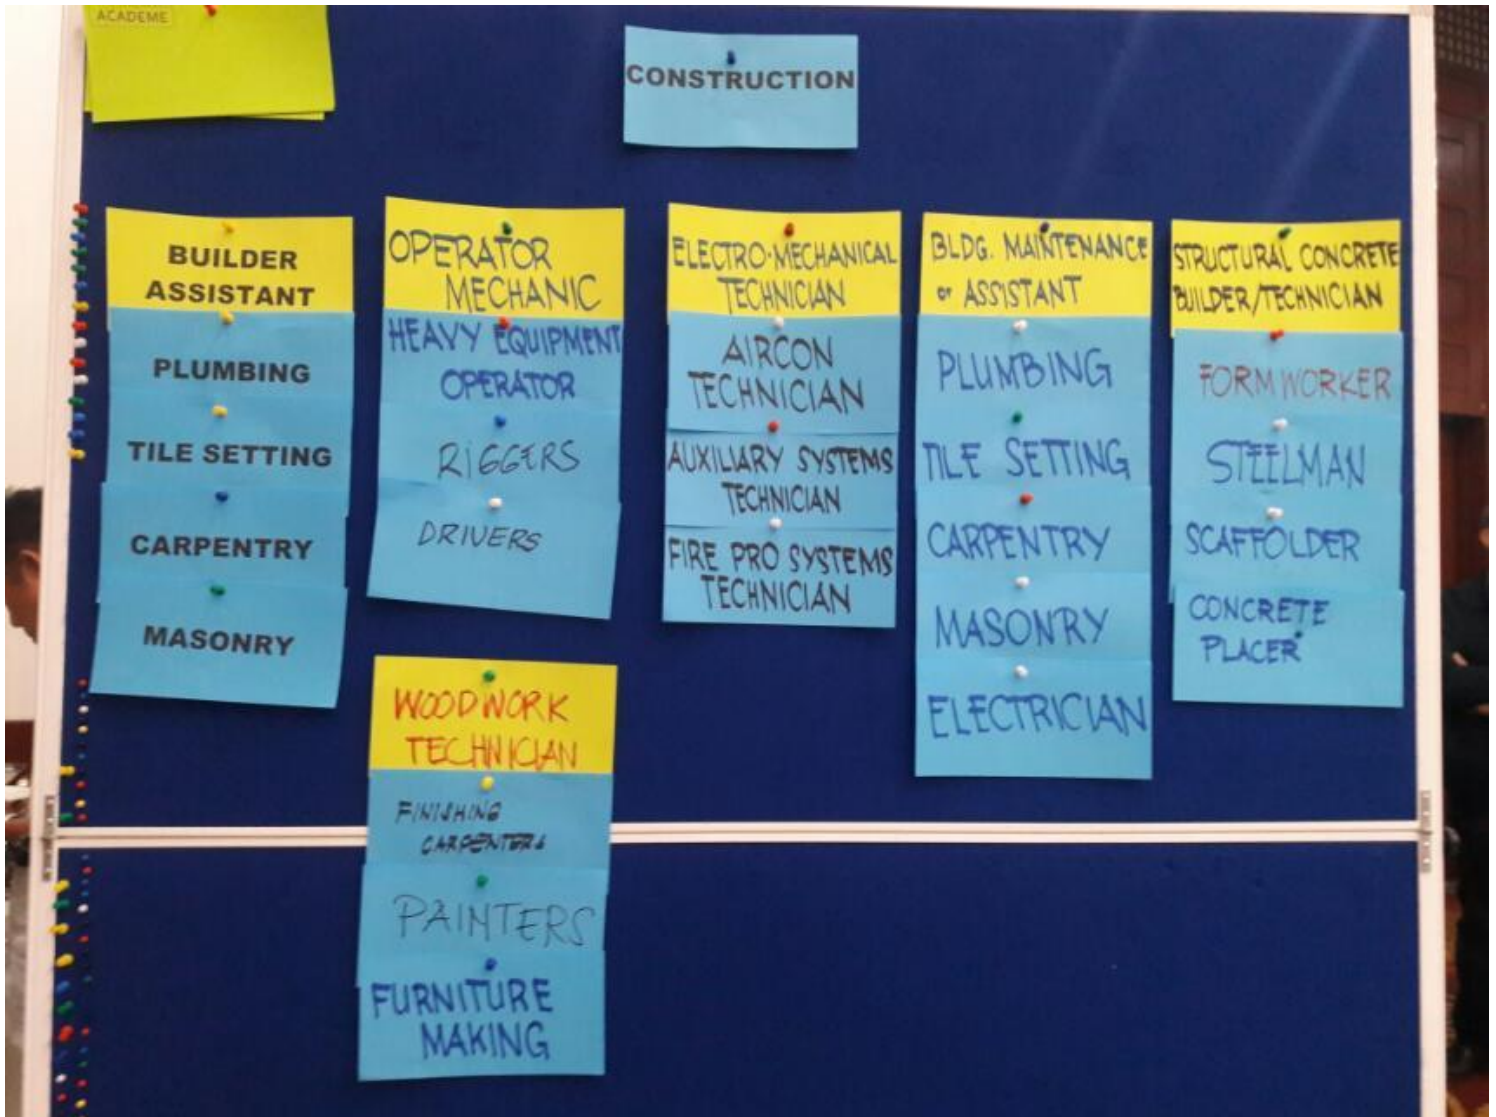 ACADEME
CONSTRUCTION
BUILDER
ASSISTANT
PLUMBING
TILE SETTING
CARPENTRY
MASONRY
OPERATOR
MECHANIC
HEAVY EQUIPMENT
OPERATOR
RIGGERS
DRIVERS
WOODWORK
TECHNICIAN
FINISHING
CARPENTERS
PAINTERS
FURNITURE
MAKING
ELECTRO-MECHANICAL
TECHNICIAN
AIRCON
TECHNICIAN
AUXILIARY SYSTEMS
TECHNICIAN
FIRE PRO SYSTEMS
TECHNICIAN
BLDG. MAINTENANCE
or ASSISTANT
PLUMBING
TILE SETTING
CARPENTRY
MASONRY
ELECTRICIAN
STRUCTURAL CONCRETE
BUILDER/TECHNICIAN
FORM WORKER
STEELMAN
SCAFFOLDER
CONCRETE
PLACER